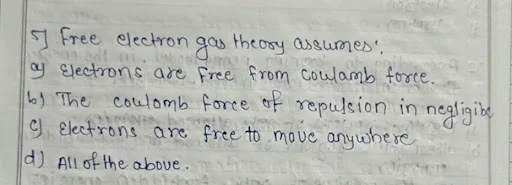 5) Free electron gas theory assumes:
a) Electrons are free from coulamb force.
b) The coulomb force of repulsion in negligibe
c) Electrons are free to move anywhere
d) All of the above.